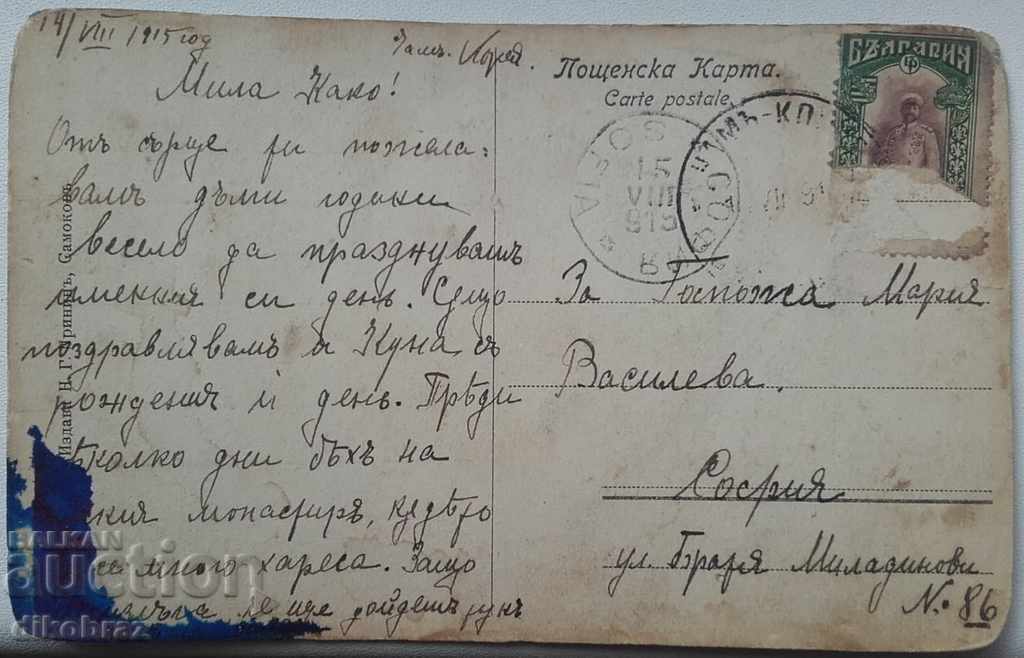 14/VIII 1915 год
Мила Како!
Отъ сърце ти пожела-
вамъ дълги години
весело да празднувашъ
именния си день. Също
поздравлявамъ и Куна съ
рождения ѝ день. Прѣди
нѣколко дни бѣхъ на
монастиръ, кѫдѣто
много хареса. Защо
не ще дойдешъ
Пощенска Карта.
Carte postale
БЪЛГАРИЯ
SOFIA
15
VIII
915
СОФИЯ
За Госпожа Мария
Василева.
София
ул. Братя Миладинови
No. 86
Издава Н. Г. Самоковъ
BALKAN
auction
dikobraz